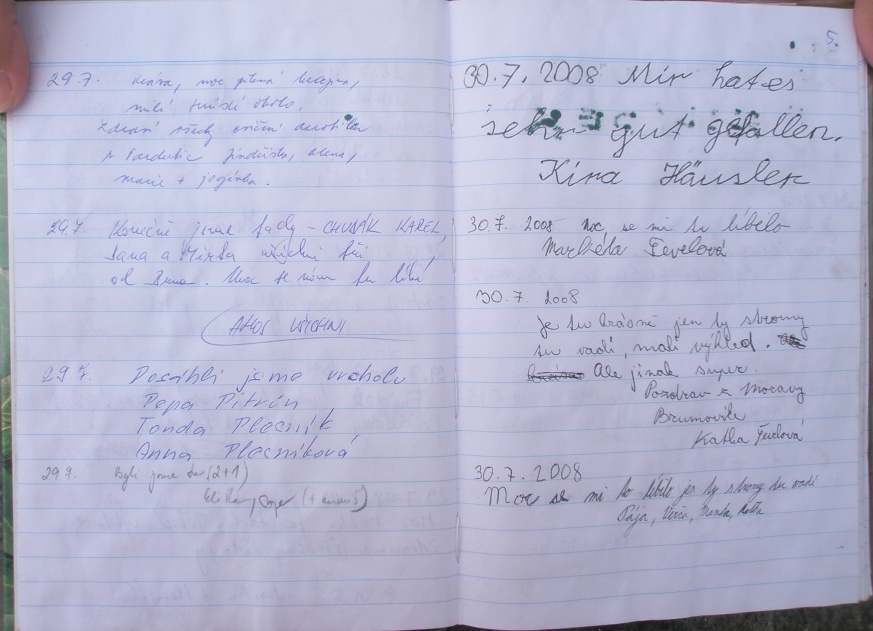 29.7. Krása, moc pěkná krajina,
milí
Zdraví všechny
z Pardubic Jindřiška, Alena,
Marie + Jozinka.
29.7. Konečně jsme tady - CHUDÁK KAREL,
Jana a Mirka všichni tři
od Brna. Moc se nám tu líbí
AHOJ VŠICHNI
29.7. Dosáhli jsme vrcholu
Pepa Pitrun
Tonda Plocník
Anna Plocníková
29.7. Byli jsme tu (2+1)
Eliška,
5.
30.7.2008 Mir hat es
sehr gut gefallen.
Kira Häusler
30.7.2008 Moc se mi tu líbilo
Markéta Fevelová
30.7.2008
Je tu krásně jen ty stromy
tu vadí, malí výhled.
Ale jinak super.
Pozdrav z Moravy
Brumovile
Katka Fevelová
30.7.2008
Moc se mi to líbilo jen ty stromy tu vadí
Pája, Verča, Katka